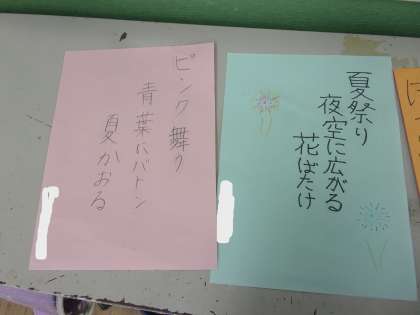 夏祭り
夜空に広がる
花ばたけ
ピンク舞う
青葉にバトン
夏かおる